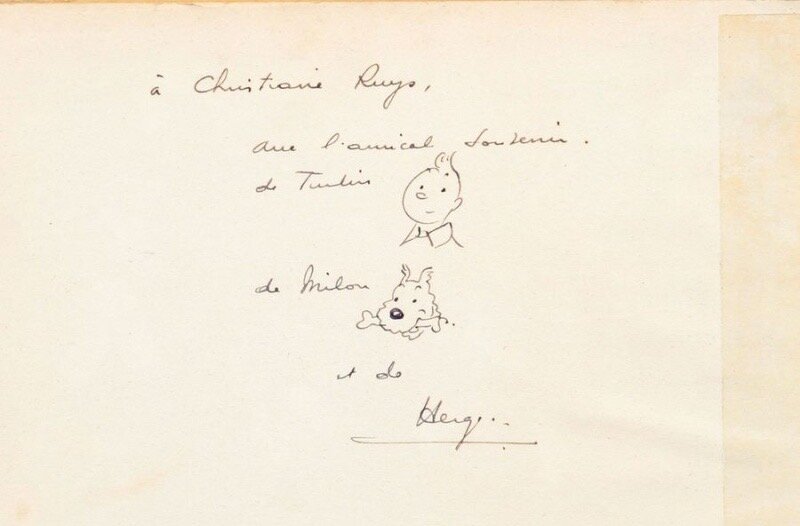 à Christiane Ruys,
avec l'amical souvenir.
de Tintin
de Milou
et de
Hergé